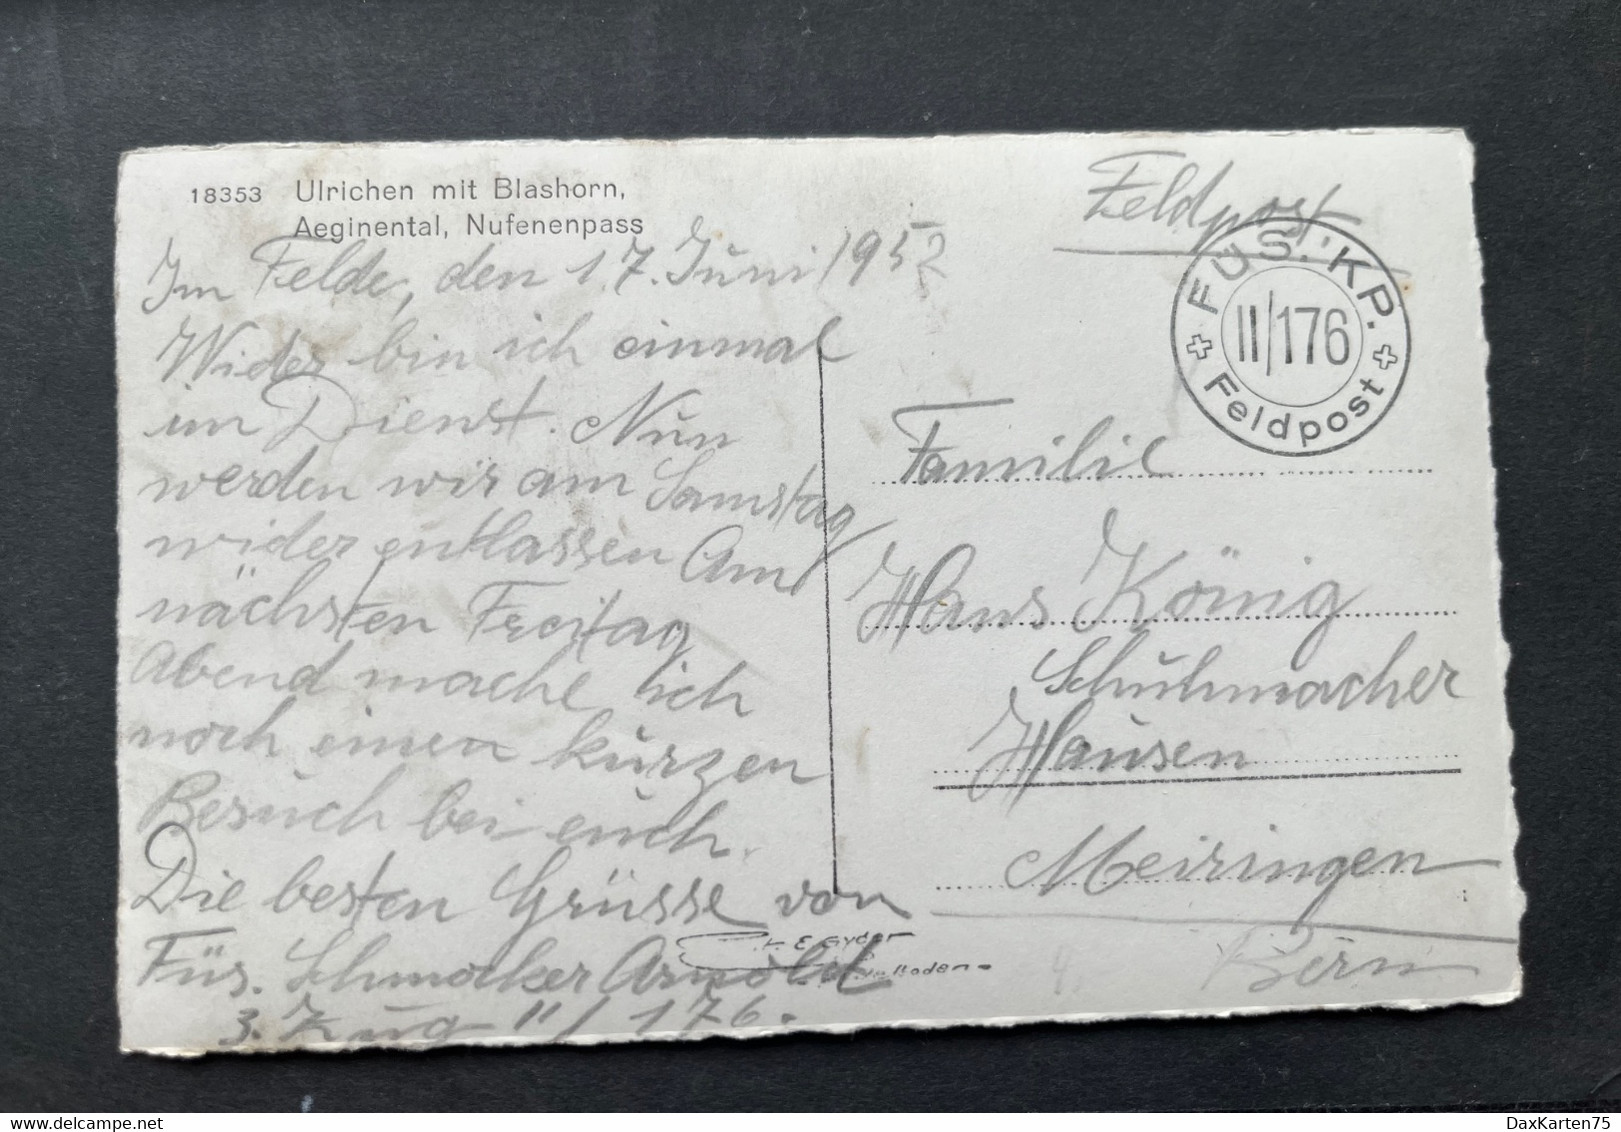 18353 Ulrichen mit Blashorn,
Aeginental, Nufenenpass
Im Felde, den 17. Juni 1952
Wider bin ich einmal
im Dienst. Nun
werden wir am Samstag
wider entlassen Am
nächsten Freitag
Abend mache ich
noch einen kurzen
Besuch bei euch.
Die besten Grüsse von
Füs. Schmocker Arnold
3. Zug II/176.
E. Gyger
Adelboden
Feldpost
FÜS. KP.
II/176
Feldpost
Familie
Hans König
Schuhmacher
Hausen
Meiringen
Bern
DaxKarten75